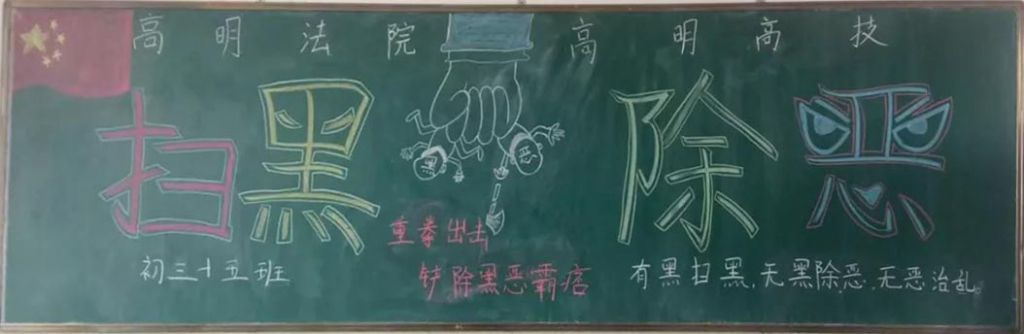 高明法院 高明高技
扫黑除恶
重拳出击
铲除黑恶霸痞
初三十五班
有黑扫黑,无黑除恶,无恶治乱